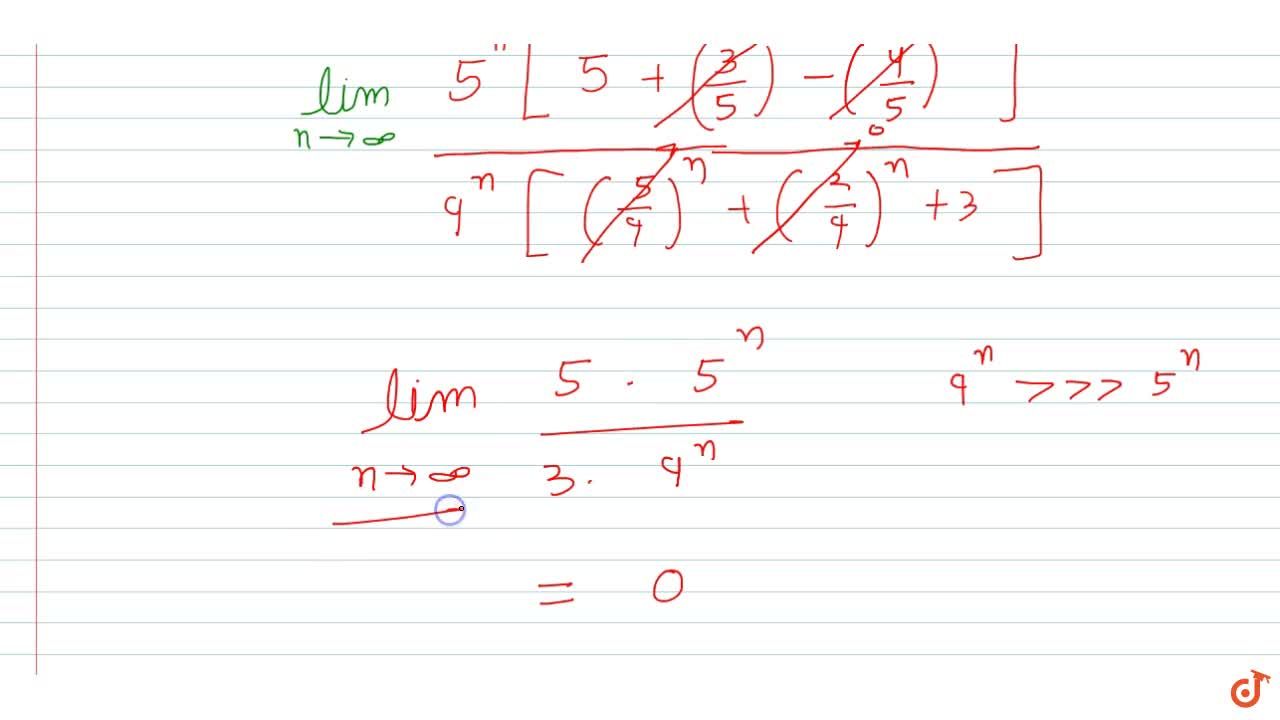 lim n→∞ 5ⁿ [ 5 + (3/5) - (4/5) ]
0
9ⁿ [ (5/9)ⁿ + (2/9)ⁿ + 3 ]
lim n→∞ 5 · 5ⁿ / 3 · 9ⁿ
9ⁿ >>> 5ⁿ
= 0